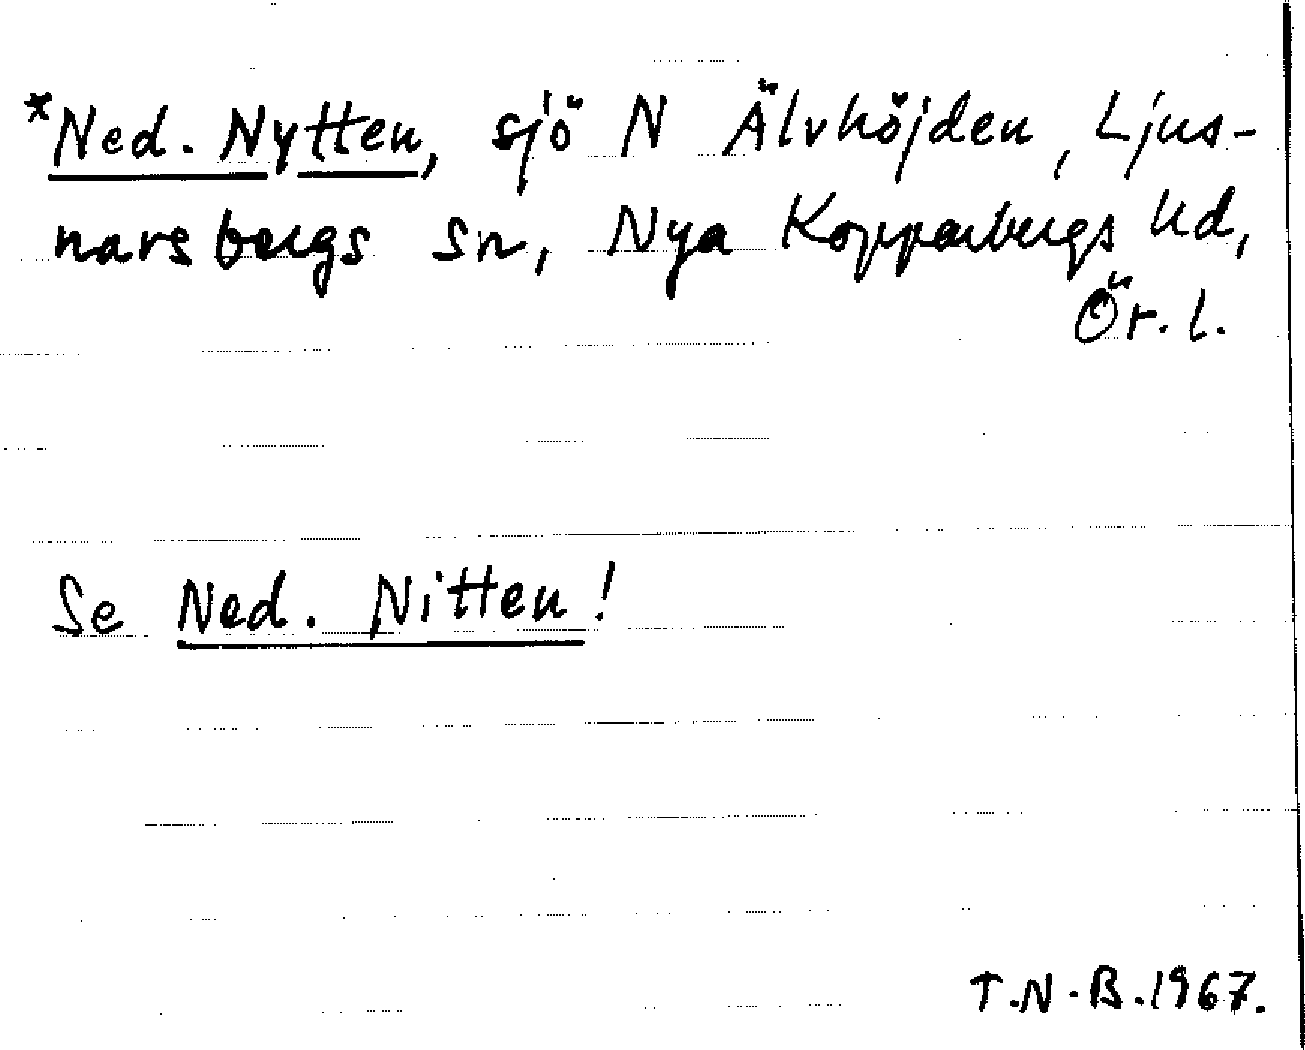 *Ned. Nytten, sjö N Älvhöjden, Ljus-
narsbergs sn, Nya Kopparbergs hd,
Ör. l.
Se Ned. Nitten!
T.N.B. 1967.